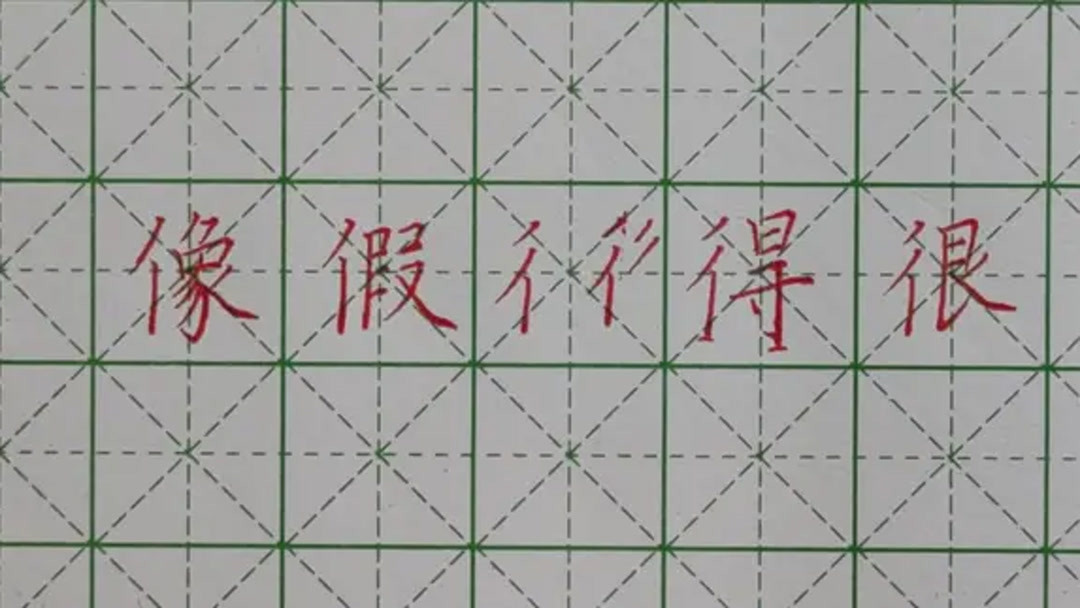 像假彳彳得很